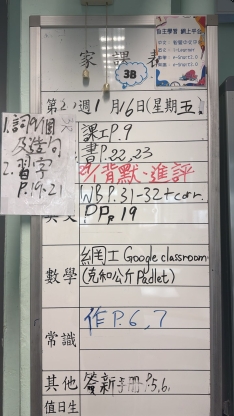 家課表
3B
自主學習 網上平台
第20週1月16日(星期五)
1.詞9個
及造句
2.習字
P.19-21
課工P.9
書P.22,23
背默、進評
WB P.31-32+corr.
PP. 19
數學
網工Google classroom
(克和公斤Padlet)
常識
作P.6,7
其他
簽新手冊P.5,6.
值日生